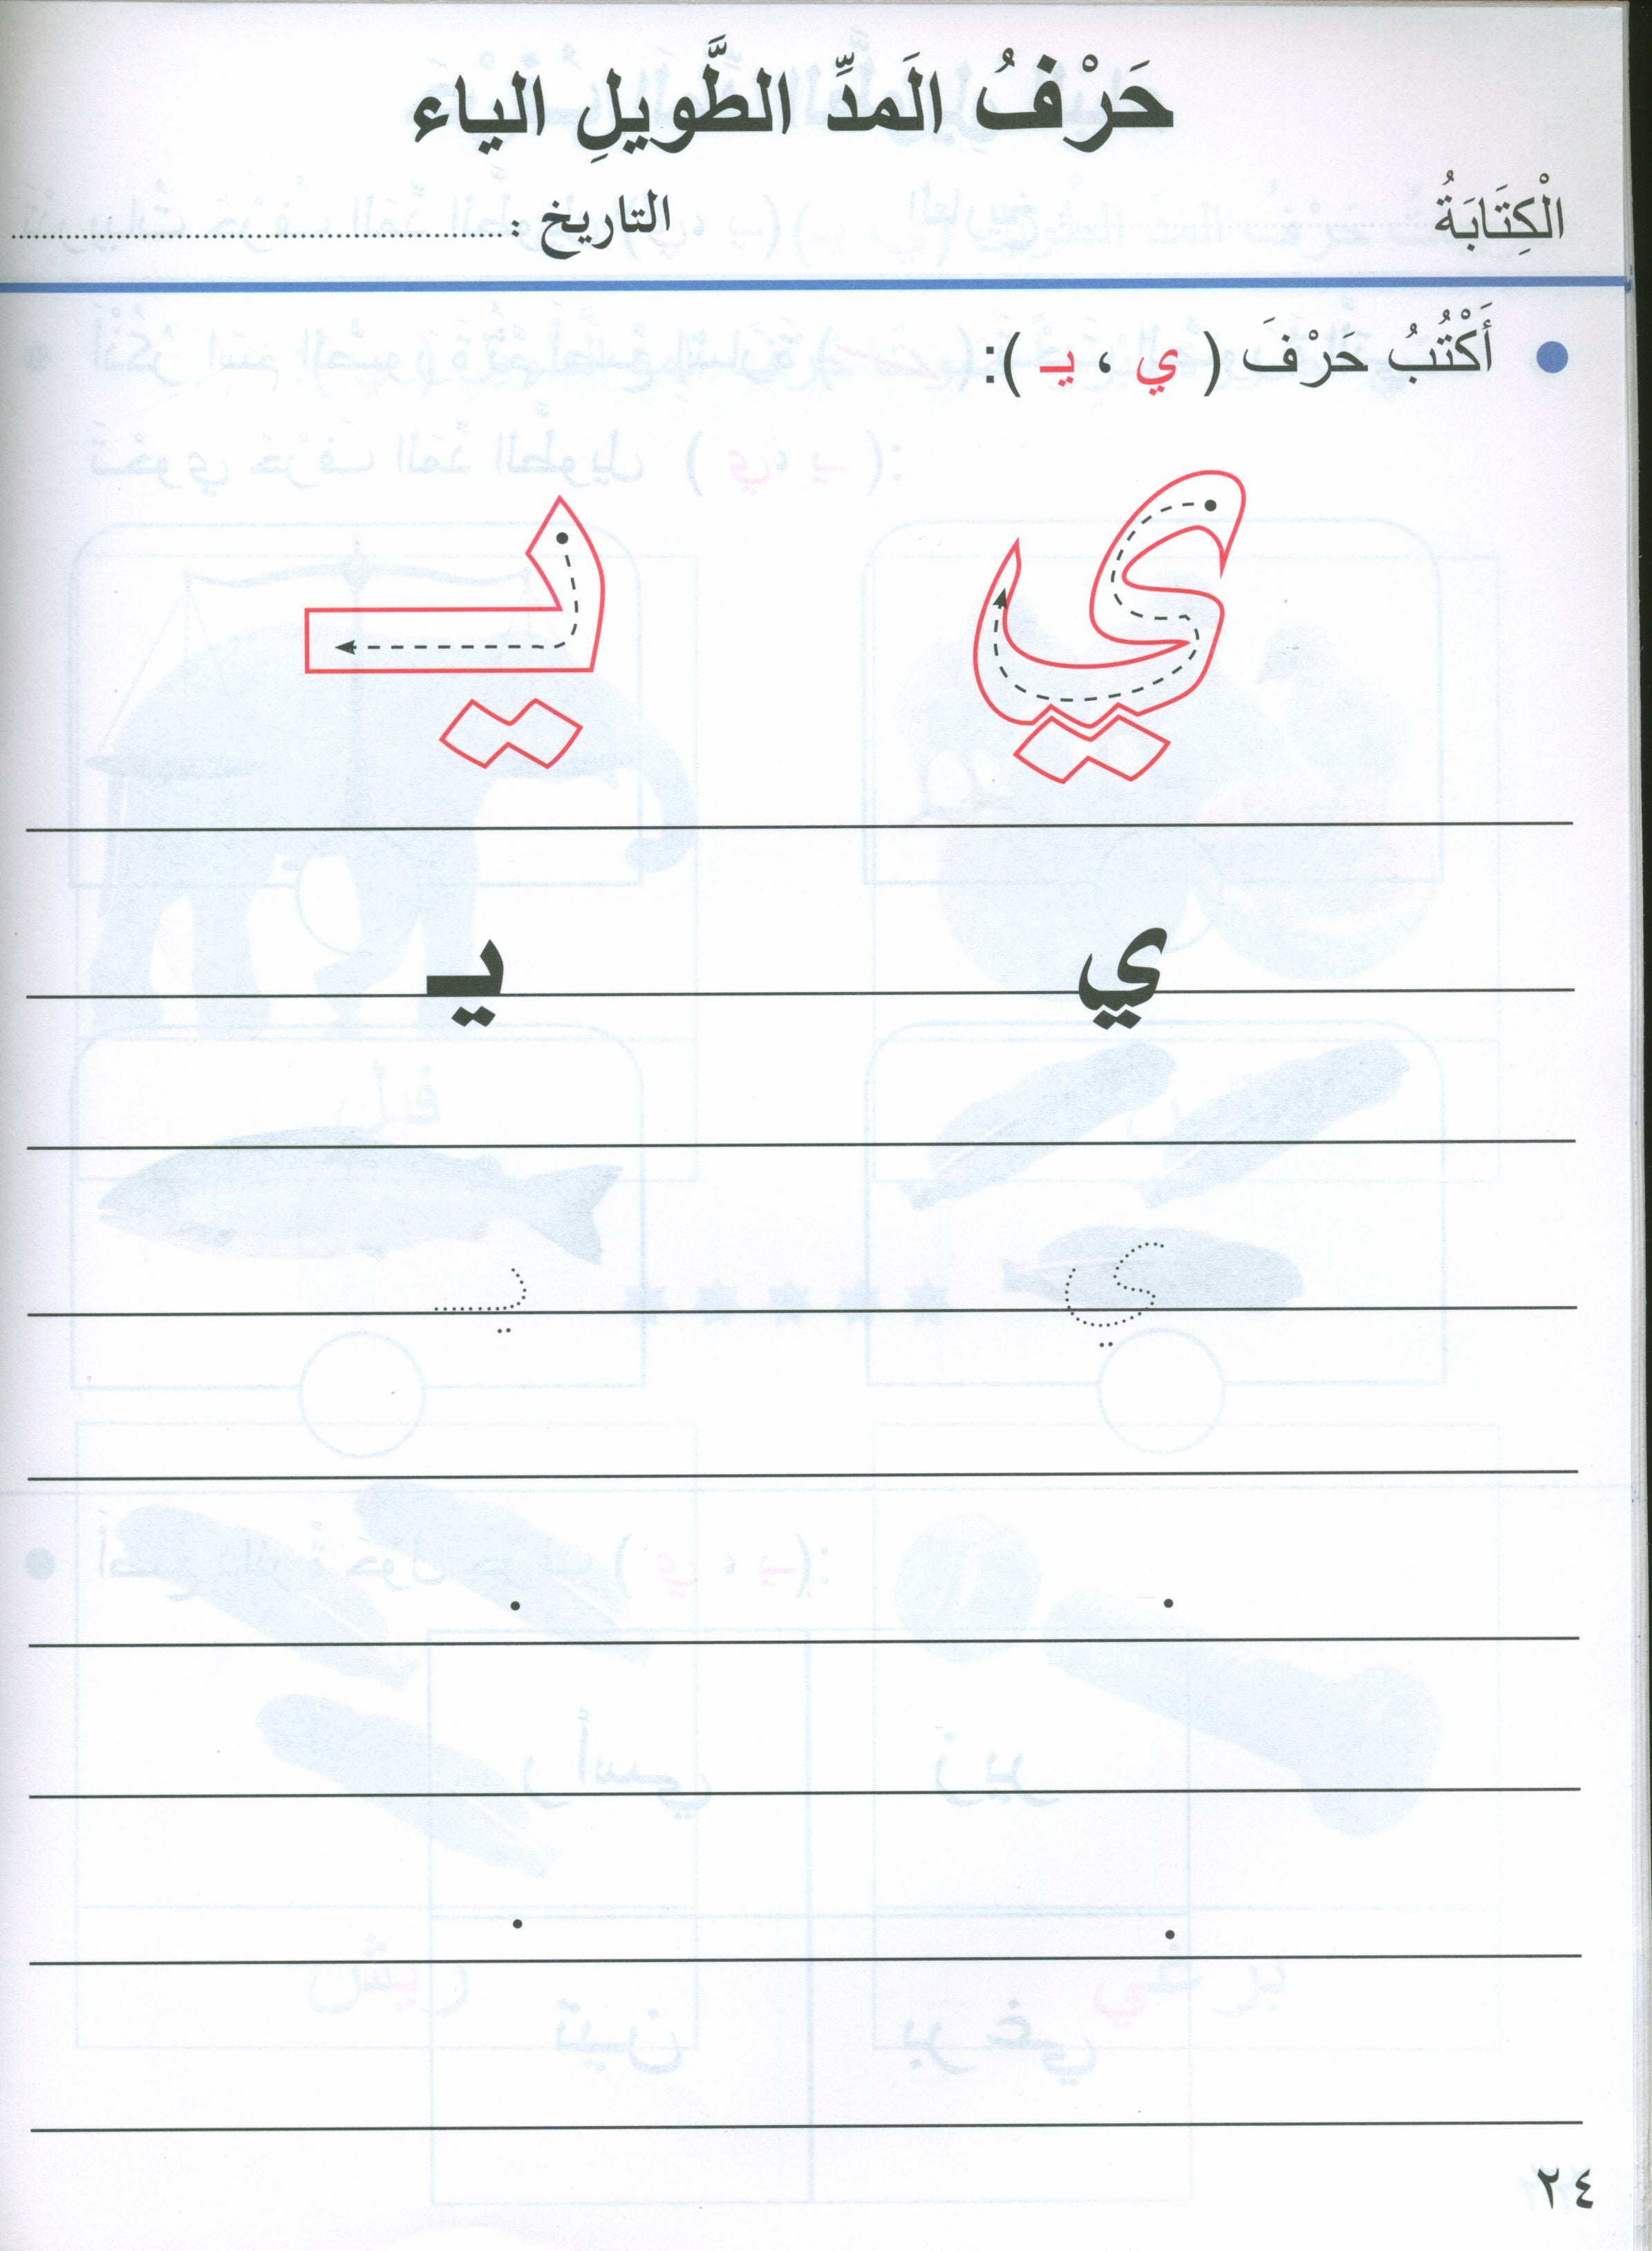 حَرْفُ الَمدِّ الطَّويلِ الياء
الْكِتَابَةُ
التاريخ :
أَكْتُبُ حَرْفَ ( ي ، يـ ):
ي يـ
ي يـ
ي يـ
٢٤